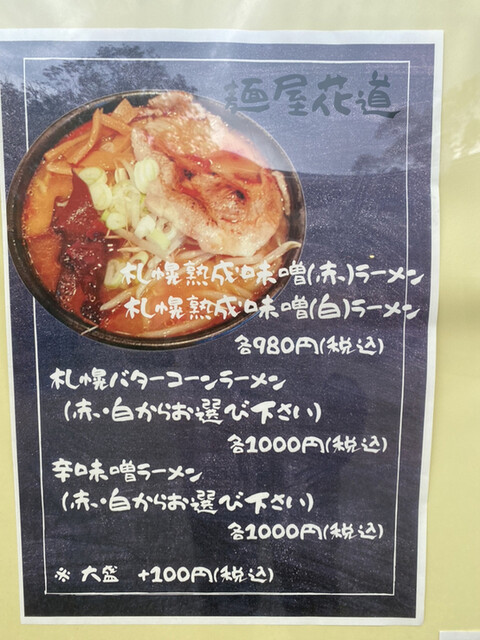 麺屋花道
札幌熟成味噌(赤)ラーメン
札幌熟成味噌(白)ラーメン
各980円(税込)
札幌バターコーンラーメン
(赤・白からお選び下さい)
各1000円(税込)
辛味噌ラーメン
(赤・白からお選び下さい)
各1000円(税込)
※ 大盛 +100円(税込)